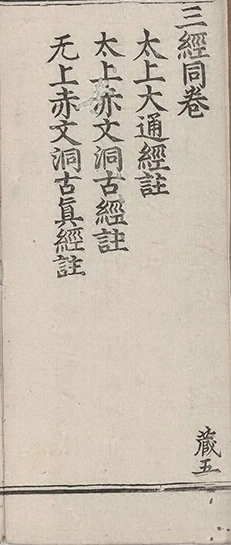 三經同卷
太上大通經註
太上赤文洞古經註
无上赤文洞古眞經註
藏五